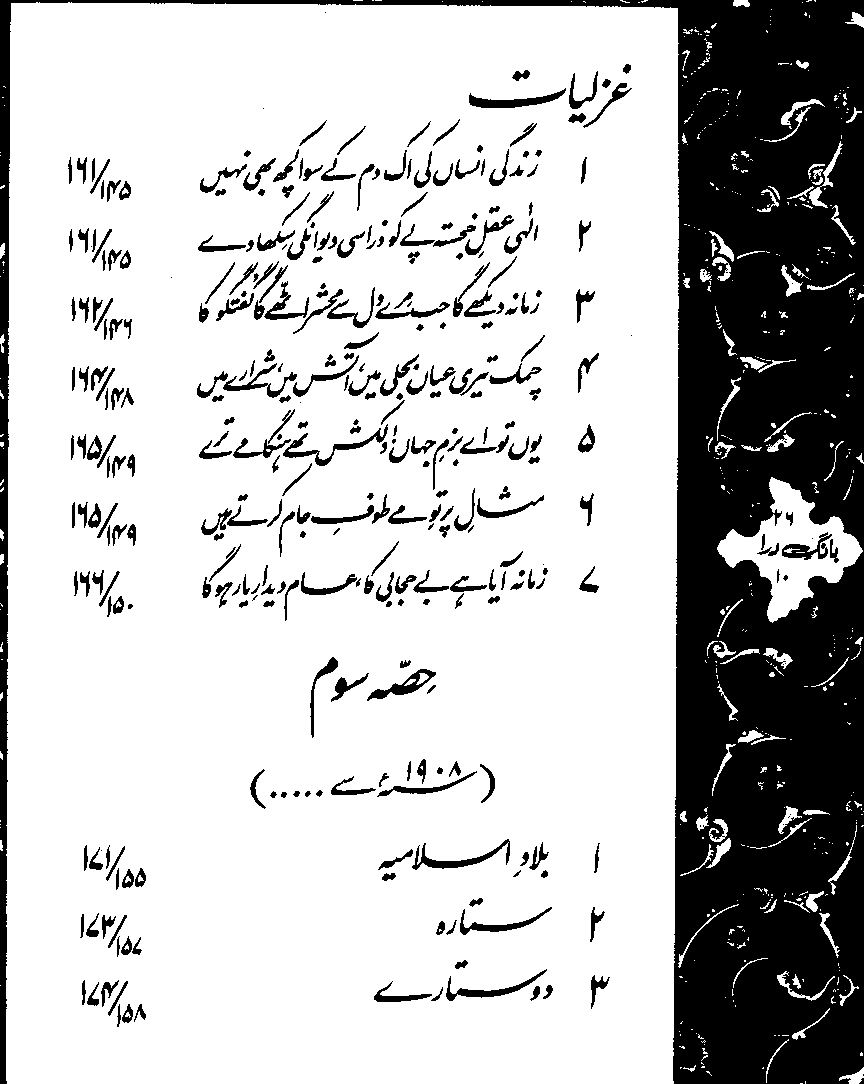 غزلیات
۱ زندگی انساں کی اک دم کے سوا کچھ بھی نہیں ۱۶۱/۱۴۵
۲ الٰہی عقلِ خجستہ پے کو ذرا سی دیوانگی سکھا دے ۱۶۱/۱۴۵
۳ زمانہ دیکھے گا جب مرے دل سے محشر اٹھے گا گفتگو کا ۱۶۲/۱۴۶
۴ چمک تیری عیاں بجلی میں، آتش میں، شرارے میں ۱۶۴/۱۴۸
۵ یوں تو اے بزمِ جہاں! دلکش تھے ہنگامے ترے ۱۶۵/۱۴۹
۶ مثالِ پرتوِ مے طوفِ جام کرتے ہیں ۱۶۵/۱۴۹
۷ زمانہ آیا ہے بے حجابی کا، عام دیدارِ یار ہو گا ۱۶۶/۱۵۰
حصّہ سوم
(۱۹۰۸ء سے .....)
۱ بلادِ اسلامیہ ۱۷۱/۱۵۵
۲ ستارہ ۱۷۳/۱۵۷
۳ دو ستارے ۱۷۴/۱۵۸
۲۶
بانگِ درا
۱۰